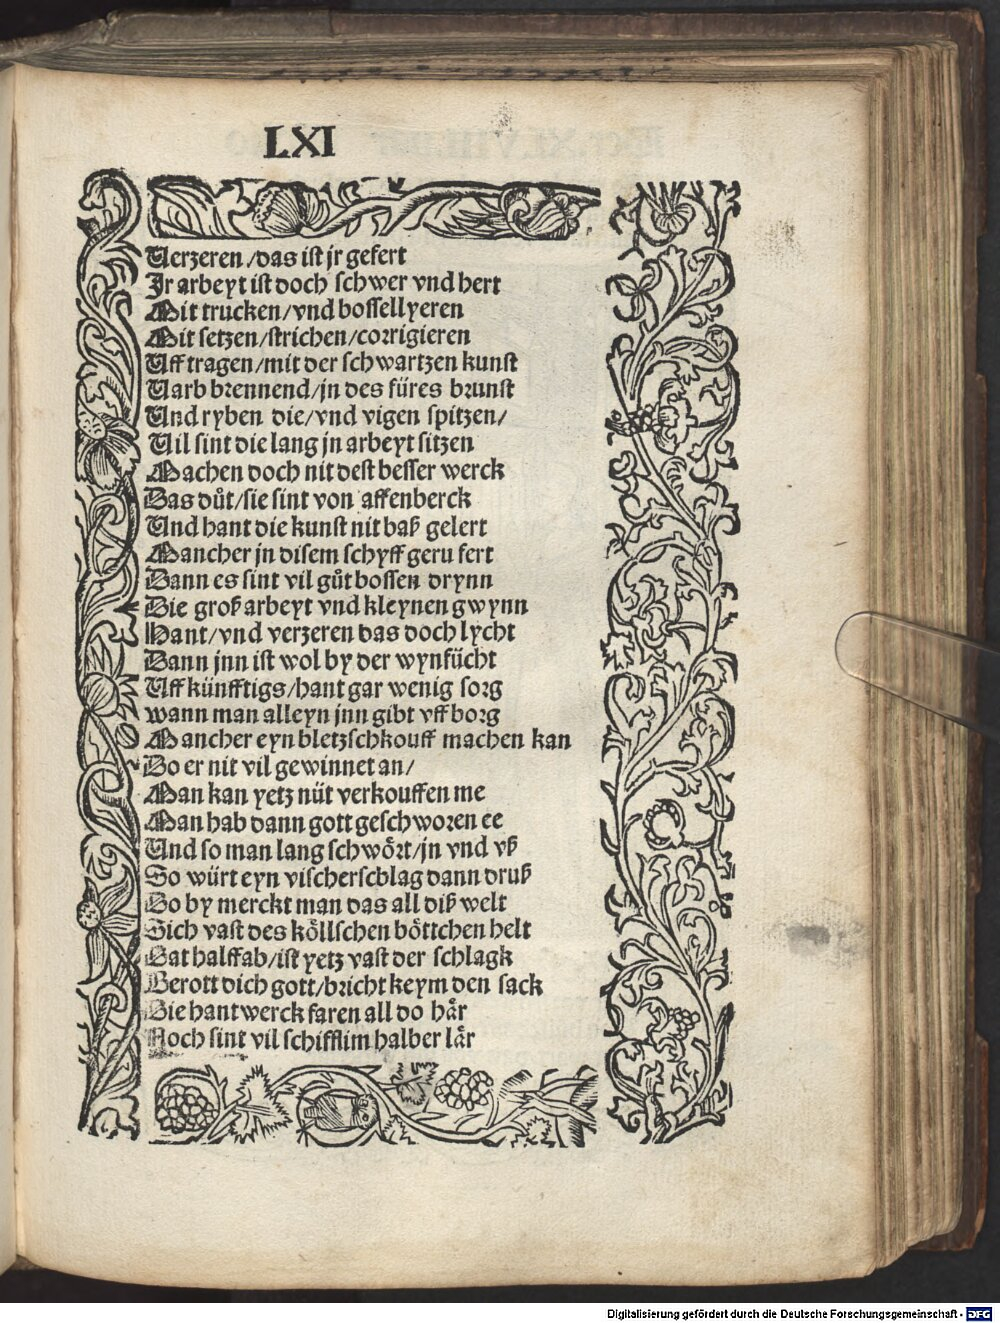 LXI
Uerzeren /das ist jr gefert
Jr arbeyt ist doch schwer vnd hert
Mit trucken/vnd bossellyeren
Mit setzen/strichen/corrigieren
Uff tragen/mit der schwartzen kunst
Uarb brennend/jn des füres brunst
Und ryben die/vnd vigen spitzen/
Uil sint die lang jn arbeyt sitzen
Machen doch nit dest besser werck
Das důt/sie sint von affenberck
Und hant die kunst nit baß gelert
Mancher jn disem schyff geru fert
Dann es sint vil gůt bossen drynn
Die groß arbeyt vnd kleynen gwynn
Hant/vnd verzeren das doch lycht
Dann jnn ist wol by der wynfücht
Uff künfftigs/hant gar wenig sorg
wann man alleyn jnn gibt vff borg
Mancher eyn bletzschkouff machen kan
Do er nit vil gewinnet an/
Man kan yetz nüt verkouffen me
Man hab dann gott geschworen ee
Und so man lang schwört/jn vnd vß
So würt eyn vischerschlag dann druß
Do by merckt man das all diß welt
Sich vast des köllschen böttchen helt
Gat halff ab/ist yetz vast der schlagk
Berott dich gott/bricht keym den sack
Die hantwerck faren all do här
Noch sint vil schifflim halber lär
Digitalisierung gefördert durch die Deutsche Forschungsgemeinschaft - DFG